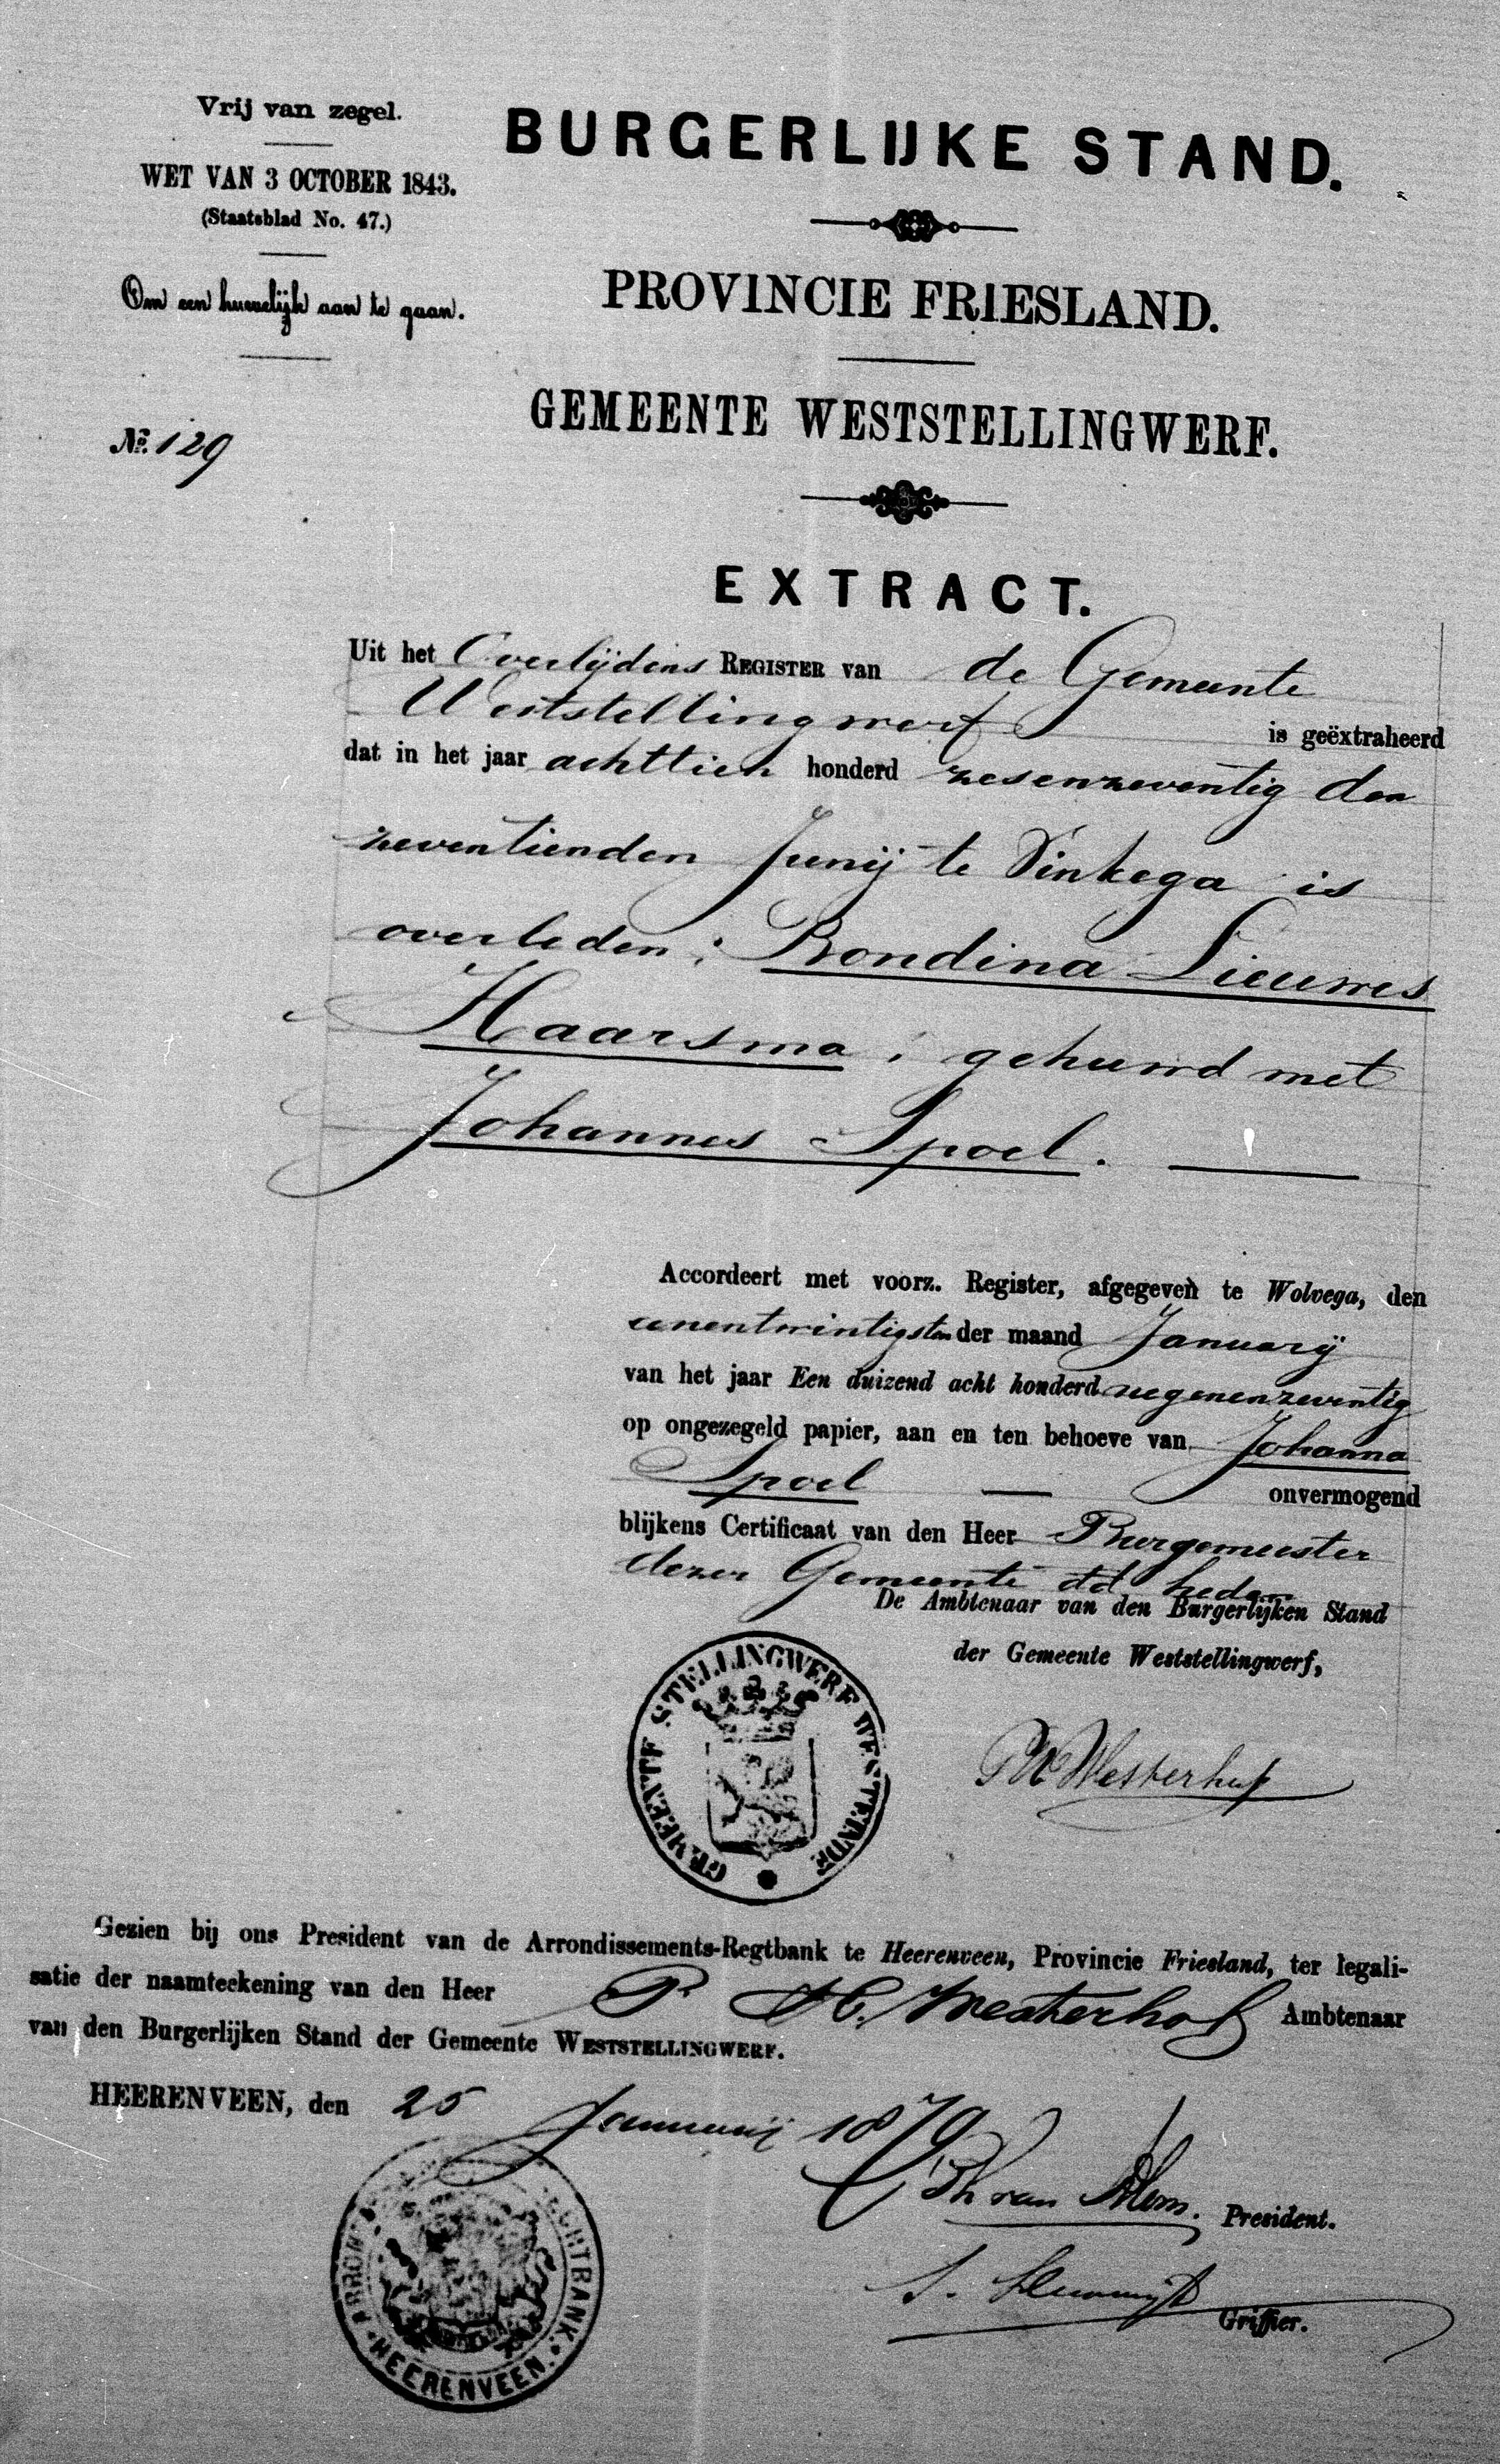 Vrij van zegel.
WET VAN 3 OCTOBER 1843.
(Staatsblad No. 47.)
Om een huwelijk aan te gaan.
No. 129
BURGERLIJKE STAND.
PROVINCIE FRIESLAND.
GEMEENTE WESTSTELLINGWERF.
EXTRACT.
Uit het Overlijdens REGISTER van de Gemeente
Weststellingwerf is geëxtraheerd
dat in het jaar achttien honderd zesenzeventig den
zeventienden Junij te Vinkega is
overleden: Rondina Lieuwes
Haarsma, gehuwd met
Johannes Spoel.
Accordeert met voorz. Register, afgegeven te Wolvega, den
eenentwintigsten der maand Januarij
van het jaar Een duizend acht honderd negenenzeventig
op ongezegeld papier, aan en ten behoeve van Johanna
Spoel onvermogend
blijkens Certificaat van den Heer Burgemeester
dezer Gemeente dd heden
De Ambtenaar van den Burgerlijken Stand
der Gemeente Weststellingwerf,
GEMEENTE STELLINGWERF WESTEINDE
PH Westerhof
Gezien bij ons President van de Arrondissements-Regtbank te Heerenveen, Provincie Friesland, ter legali-
satie der naamteekening van den Heer P. H. Westerhof Ambtenaar
van den Burgerlijken Stand der Gemeente WESTSTELLINGWERF.
HEERENVEEN, den 25 Januarij 1879
van President.
Griffier.
HEERENVEEN.